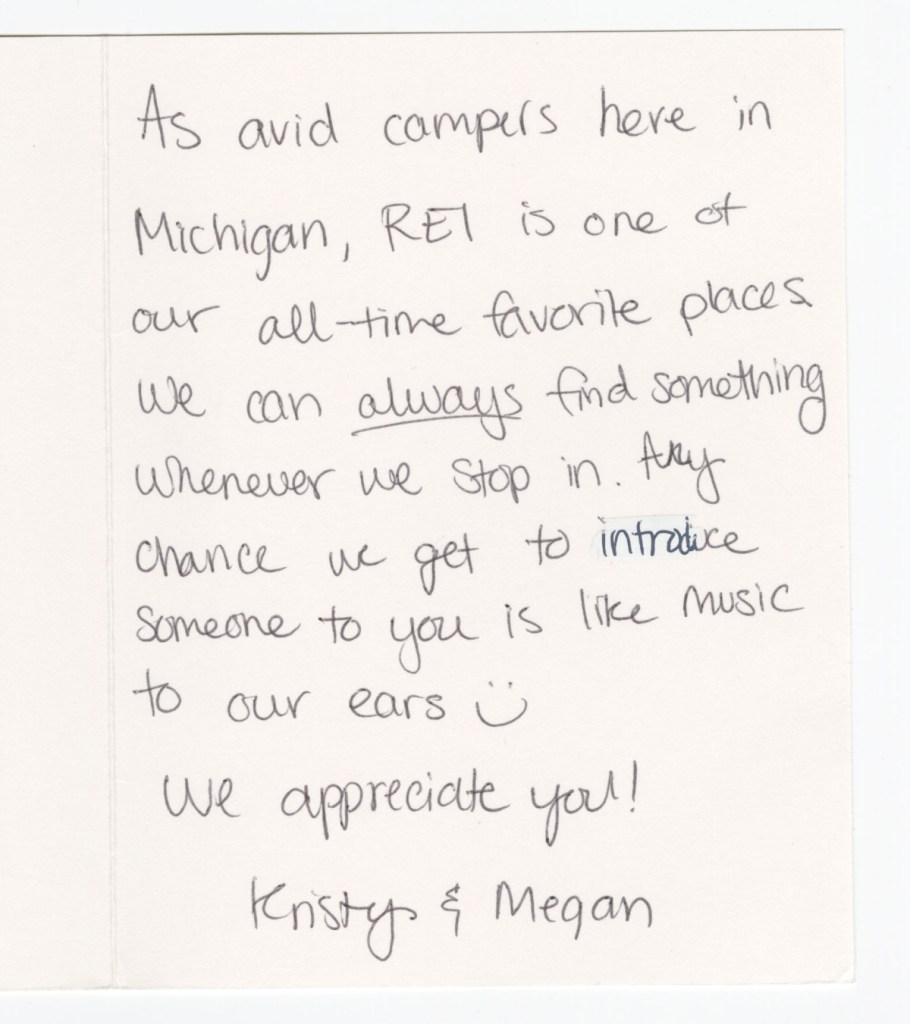 As avid campers here in
Michigan, REI is one of
our all-time favorite places.
We can always find something
whenever we stop in. Any
chance we get to introduce
someone to you is like music
to our ears ü
We appreciate you!
Kristy & Megan